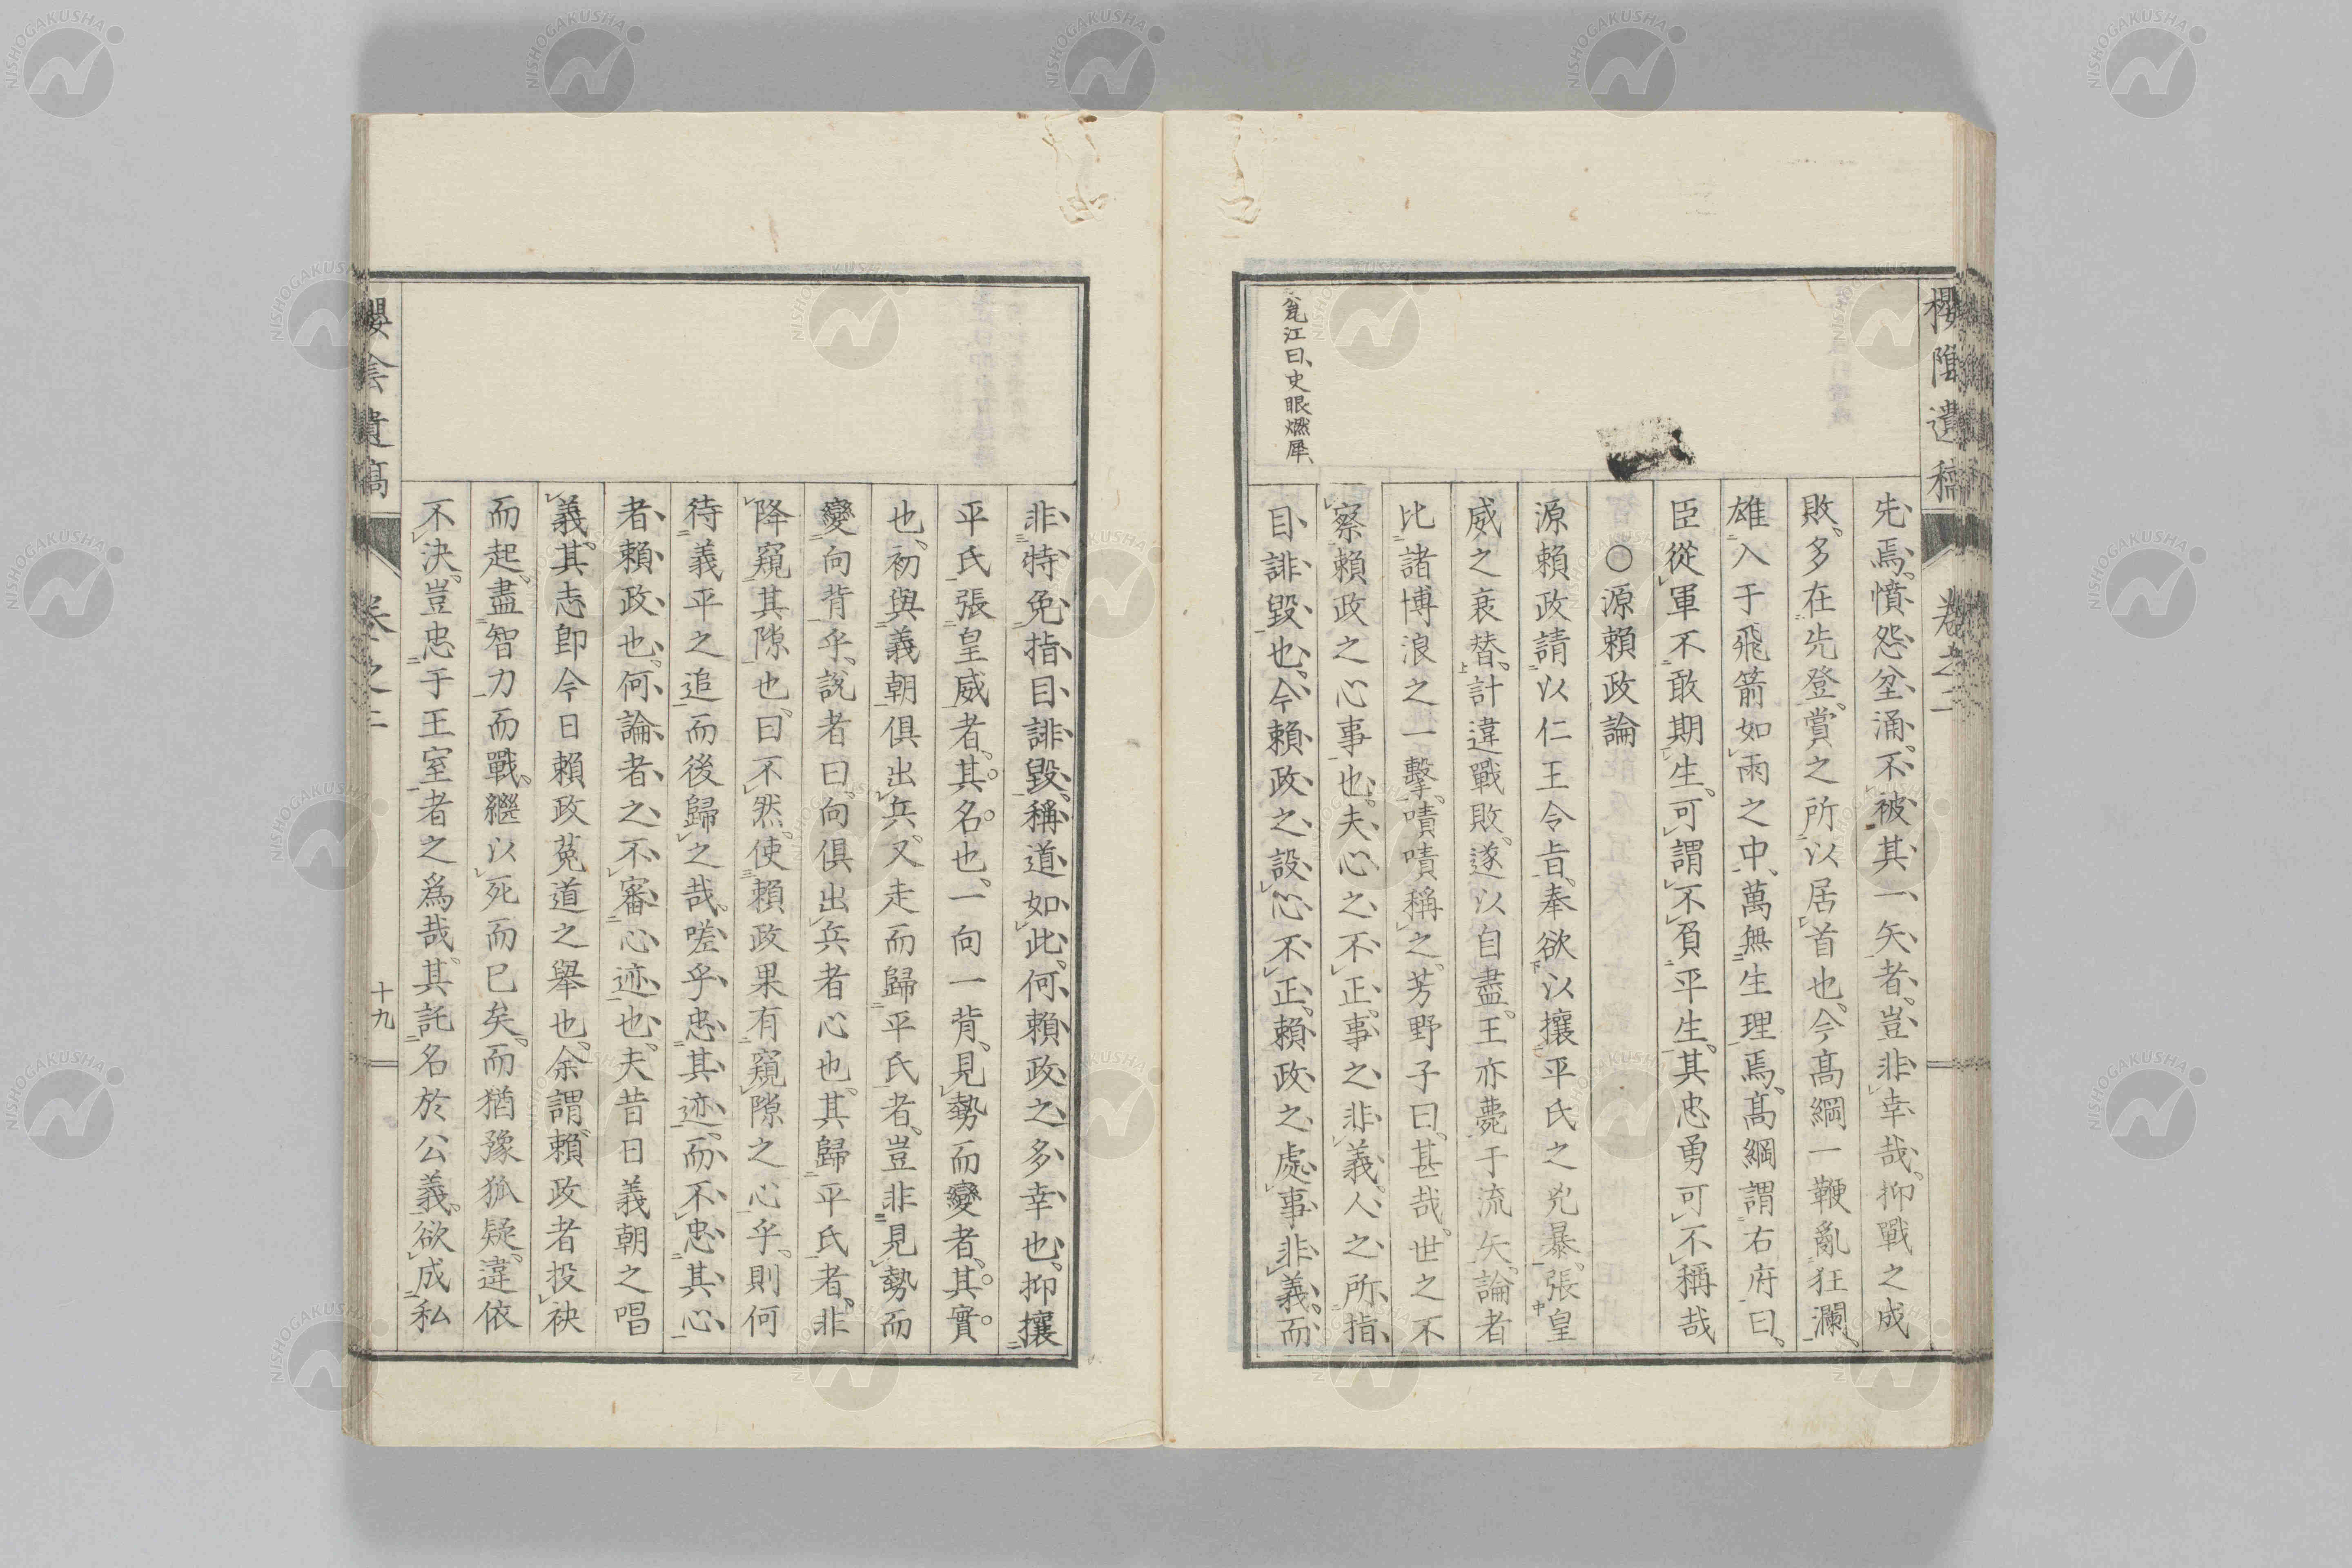 櫻陰遺稿 卷之二
先焉、憤怨坌涌、不被其一矢者、豈非幸哉。抑戰之成
敗、多在先登。賞之所以居首也、今髙綱一鞭亂狂瀾、
雄入于飛箭如雨之中、萬無生理焉、髙綱謂右府曰、
臣從軍不敢期生。可謂不負平生。其忠勇可不稱哉
○源賴政論
源賴政請以仁王令旨、奉欲以攘平氏之兇暴、張皇
威之衰替。計違戰敗。遂以自盡。王亦薨于流矢。論者
比諸博浪之一擊。嘖嘖稱之。芳野子曰、甚哉。世之不
察賴政之心事也。夫心之不正。事之非義。人之所指
目誹毀也、今賴政之設心不正。賴政之處事非義。而
瓮江曰、史眼燃犀、
非特免指目誹毀、稱道如此。何賴政之多幸也、抑攘
平氏張皇威者、其名也、一向一背、見勢而變者、其實
也、初與義朝俱出兵、又走而歸平氏者、豈非見勢而
變向背乎。說者曰、向俱出兵者心也。其歸平氏者、非
降窺其隙也、曰、不然。使賴政果有窺隙之心乎。則何
待義平之追而後歸之哉。嗟乎、忠其迹、而不忠其心
者、賴政也。何論者之不審心迹也。夫昔日義朝之唱
義。其志卽今日賴政菟道之舉也。余謂賴政者投袂
而起。盡智力而戰。繼以死而已矣。而猶豫狐疑。違依
不決。豈忠于王室者之爲哉。其託名於公義。欲成私
櫻陰遺稿 卷之二 十九